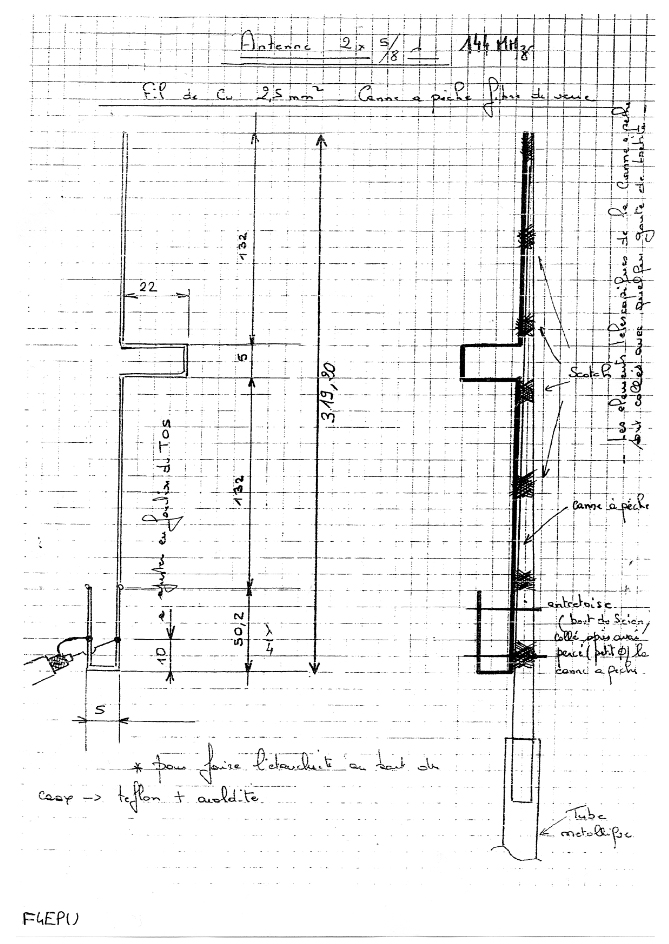 Antenne 2 x 5/8 λ 144 MHz
Fil de Cu 2,5 mm² - Canne a pêche fibre de verre
132
22
5
132
319,20
a ajuster en fonction du TOS
50,2
λ/4
10
5
* pour faire l'étanchéité au bout du
coax -> teflon + araldite.
Les elements telescopiques de la Canne a pêche
sont collés avec quelques goute de
Scotch
canne à pêche
entretoise
(bout de
collé après avoir
percé (petit φ) la
canne a pêche.
Tube
metallique